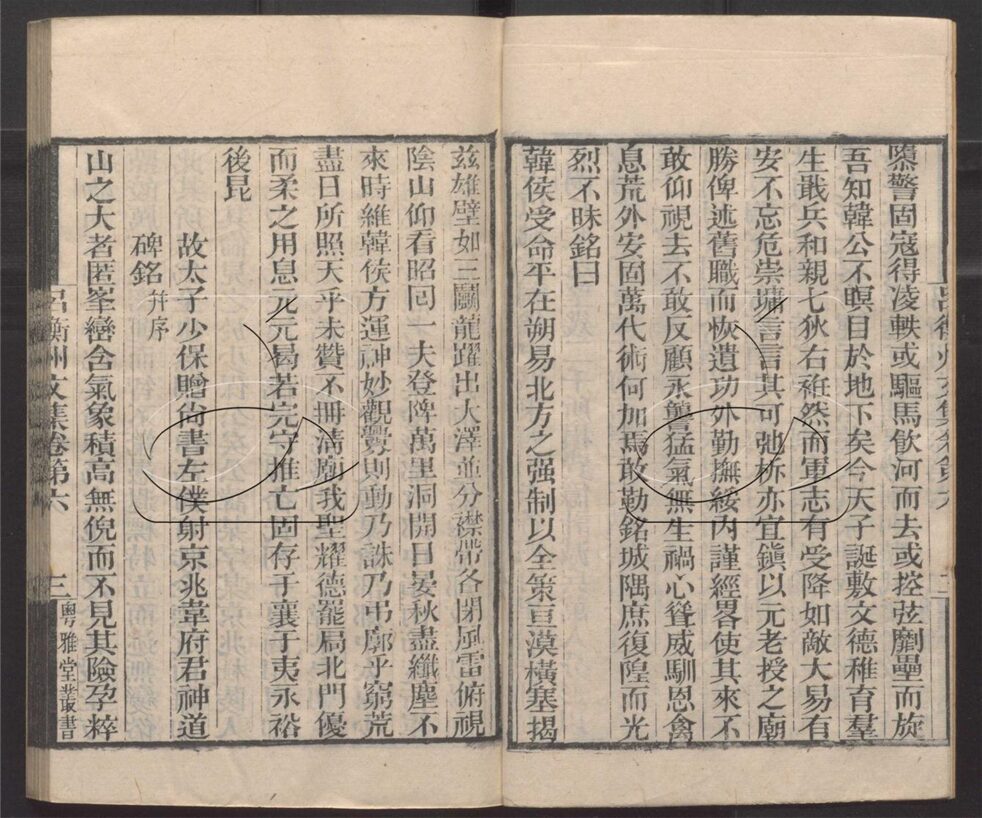 隳警固寇得凌軼或驅馬飲河而去或控弦劘壘而旋
吾知韓公不瞑目於地下矣今天子誕敷文德稚育羣
生戢兵和親七狄右袵然而軍志有受降如敵大易有
安不忘危崇墉言言其可弛柝亦宜鎭以元老授之廟
勝俾述舊職而恢遺功外勤撫綏內謹經畧使其來不
敢仰視去不敢反顧永讋猛氣無生禍心聳威馴恩禽
息荒外安固萬代術何加焉敢勒銘城隅庶復隍而光
烈不昧銘曰
韓侯受命平在朔易北方之强制以全策亘漠橫塞揭
茲雄壁如三鬭龍躍出大澤並分襟帶各閉風雷俯視
陰山仰看昭回一夫登陴萬里洞開日晏秋盡纖塵不
來時維韓侯方運神妙觀釁則動乃誅乃弔廓乎窮荒
盡日所照天乎未贊不冊淸廟我聖耀德罷扃北門優
而柔之用息元元曷若完守推亡固存于襄于夷永裕
後昆
故太子少保贈尙書左僕射京兆韋府君神道
碑銘 幷序
山之大者匿峯巒含氣象積高無倪而不見其險孕粹
呂衡州文集卷第六 三 粤雅堂叢書